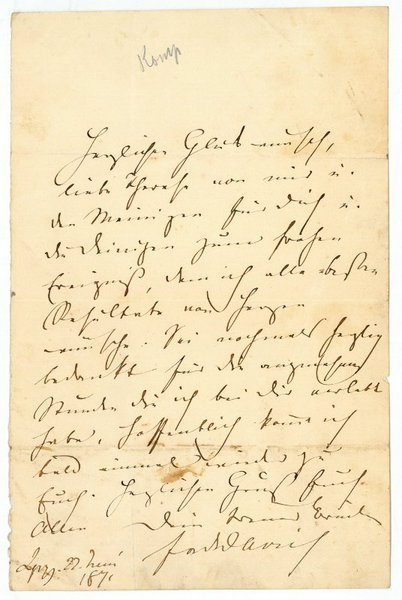 Komp
Herzlichen Glückwunsch,
liebe Therese von mir u.
den Meinigen für Dich u.
die Deinigen zum frohen
Ereigniß, dem ich alle besten
Resultate von Herzen
wünsche. Sei nochmals herzlich
bedankt für die angenehmen
Stunden die ich bei Dir verlebt
habe, hoffentlich komme ich
bald einmal wieder zu
Euch. Herzlichen Gruß Euch
Allen Dein treuer Bruder
Lpzg. 22. Juni
187